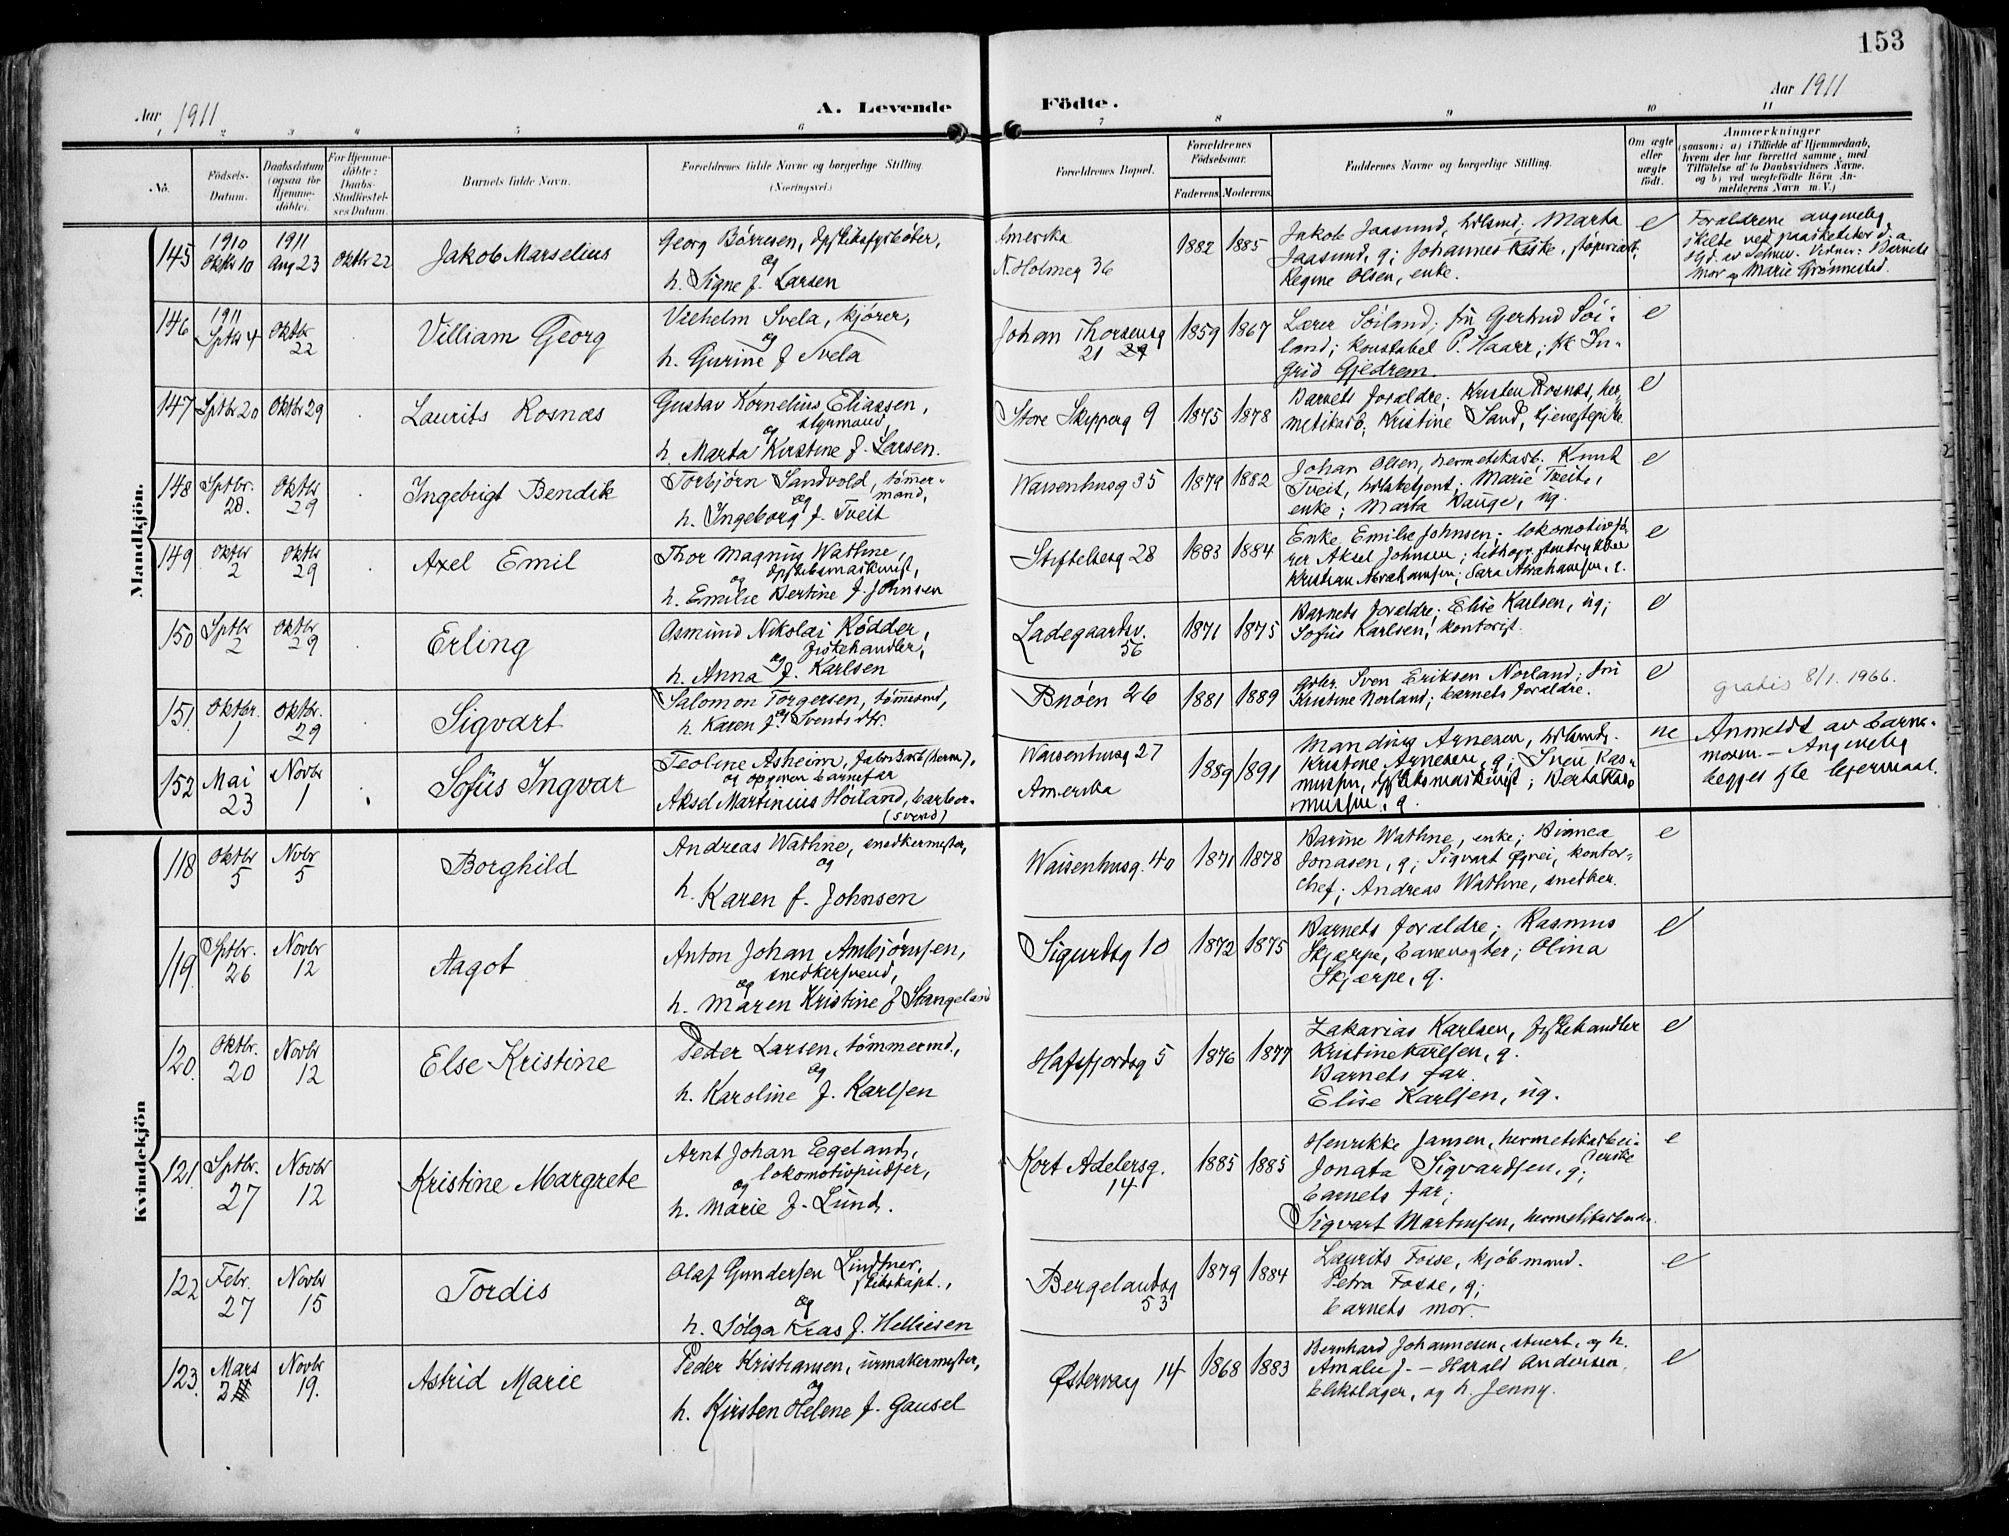 153
Aar 1911
A. Levende
Födte.
Aar 1911
No.
Fødsels-Datum.
Daabsdatum (ogsaa for Hjemme-døbte).
For Hjemme-døbte: Daabs-Stadfæstel-ses Datum.
Barnets fulde Navn.
Forældrenes fulde Navne og borgerlige Stilling. (Næringsvei.)
Forældrenes Bopæl.
Forældrenes Fødselsaar.
Faderens Moderens
Faddernes Navne og borgerlige Stilling.
Om ægte eller uægte født.
Anmærkninger
(saasom: a) i Tilfælde af Hjemmedaab, hvem der har forrettet samme, med Tilføielse af to Daabsvidners Navne, og b) ved uægtefødte Børn An-melderens Navn m. V.)
Mandkjön.
145 1910 Oktbr 10
1911 Aug 23
Oktbr 22
Jakob Marselius
Georg Børresen, dpskibsfyrbøter,
og
h. Signe f. Larsen
Amerika
N. Holmeg 36
1882 1885
Jakob Jaasund, Marta
Jaasund, g; Johannes Kaske,
Regine Olsen, enke.
e
Forældrene angivelig
skilte ved
Vidner: Barnets
Mor og Marie Grønnestad.
146 1911 Sptbr 4
Oktbr 22
Villiam Georg
Vilhelm Svela, kjører,
og
h. Gurine f Svela
Johan Thorsensg
21
1859 1867
Lærer Söiland; fru Gjertrud Söi-
land; konstabel P. Haarr; frk In-
grid Gjedrem.
e
147 Sptbr 20
Oktbr 29
Laurits Rosnæs
Gustav Kornelius Eliassen,
styrmand,
og
h. Marta Kirstine f. Larsen.
Store Skipperg 9
1875 1878
Barnets forældre; Kristen Rosnæs, her-
metikarb; Kristine Sand, tjenestepike.
e
148 Sptbr. 28.
Oktbr 29
Ingebrigt Bendik
Torbjörn Sandvold, tømmer-
mand,
og
h. Ingeborg f. Tveit
Waisenhusg 35
1879 1882
Johan Olsen, hermetikarb. Knut
Tveit, Marie Tveit,
enke; Marta Hauge, ug.
e
149 Oktbr 2
Oktbr 29
Axel Emil
Thor Magnus Wathne,
dpskibsmaskinist,
og
h. Emilie Bertine f. Johnsen
Stiftelsesg 28
1883 1884
Enke Emilie Johnsen; lokomotivfø-
rer Aksel Johnsen;
Kristian Abrahamsen; Sara Abrahamsen, g.
e
150 Sptbr 2
Oktbr 29
Erling
Asmund Nikolai Rödder,
fiskehandler,
og
h. Anna f. Karlsen
Ladegaardsv.
56
1871 1875
Barnets forældre; Elise Karlsen, ug;
Sofus Karlsen, kontorist.
e
151 Oktbr. 1
Oktbr. 29
Sigvart
Salomon Torgersen, tømmermd,
og
h. Karen f. Svendsdtr.
Bnöen 26
1881 1889
Sven Eriksen Norland; fru
Kristine Norland; barnets forældre.
e
gratis 8/1. 1966.
152 Mai 23
Novbr 1
Sofus Ingvar
Teoline Asheim, fabrikarb (herm),
og opgiven barnefar
Aksel Martinius Höiland, barber-
(svend)
Waisenhusg 27
Amerika
1889 1891
Mandius Arnesen,
Kristene Arnesen, g; Sven Ras-
mussen, dpskibsmaskinist; Berta Ras-
mussen, g.
ne
Anmeldt av barne-
moren. – Angivelig
begges 1ste leiermaal.
Kvindekjön
118 Oktbr 5
Nvbr 5
Borghild
Andreas Wathne, snedkermester,
og
h. Karen f. Johnsen
Waisenhusg. 40
1871 1878
Barine Wathne, enke; Bianca
Jonasen, g; Sigvart kontor-
chef; Andreas Wathne, snedker.
e
119 Sptbr. 26
Novbr 12
Aagot
Anton Johan Ambjörnsen,
snedkersvend,
og
h. Maren Kristine f Stangeland
Sigurdsg 10
1872 1875
Barnets forældre; Rasmus
Skjærpe, banevogter; Olina
Skjærpe, g.
e
120. Oktbr. 20
Novbr 12
Else Kristine
Peder Larsen, tömmermd.,
og
h. Karoline f. Karlsen
Hafsfjordsg 5
1876 1877
Zakarias Karlsen, fiskehandler
Kristine Karlsen, g.
Barnets far.
Elise Karlsen, ug.
e
121. Sptbr. 27
Novbr 12
Kristine Margrete
Arnt Johan Egeland,
lokomotivpudser,
og
h. Marie f. Lund.
Kort Adelersg.
14
1885 1885
Henrikke Jansen, hermetikarbei-
derske
Jonata Sigvardsen, g;
barnets far;
Sigvart Martinsen, hermetikarbeider.
e
122 Febr. 27
Novbr 15
Tordis
Olaf Gundersen Lindtner,
skibskapt.,
og
h. Sølga Kras f. Helliesen
Bergelandsg
53
1879 1884
Laurits Fosse, kjöbmand.
Petra Fosse, g;
barnets mor
e
123. Mars 2
Novbr 19.
Astrid Marie
Peder Kristiansen, urmakermester,
og
h. Kirsten Helene f. Gausel
Østervaag 14
1868 1883
Bernhard Johannesen, stuert, og h.
Amalie f. – Harald Andersen,
blikslager, og h. Jenny.
e